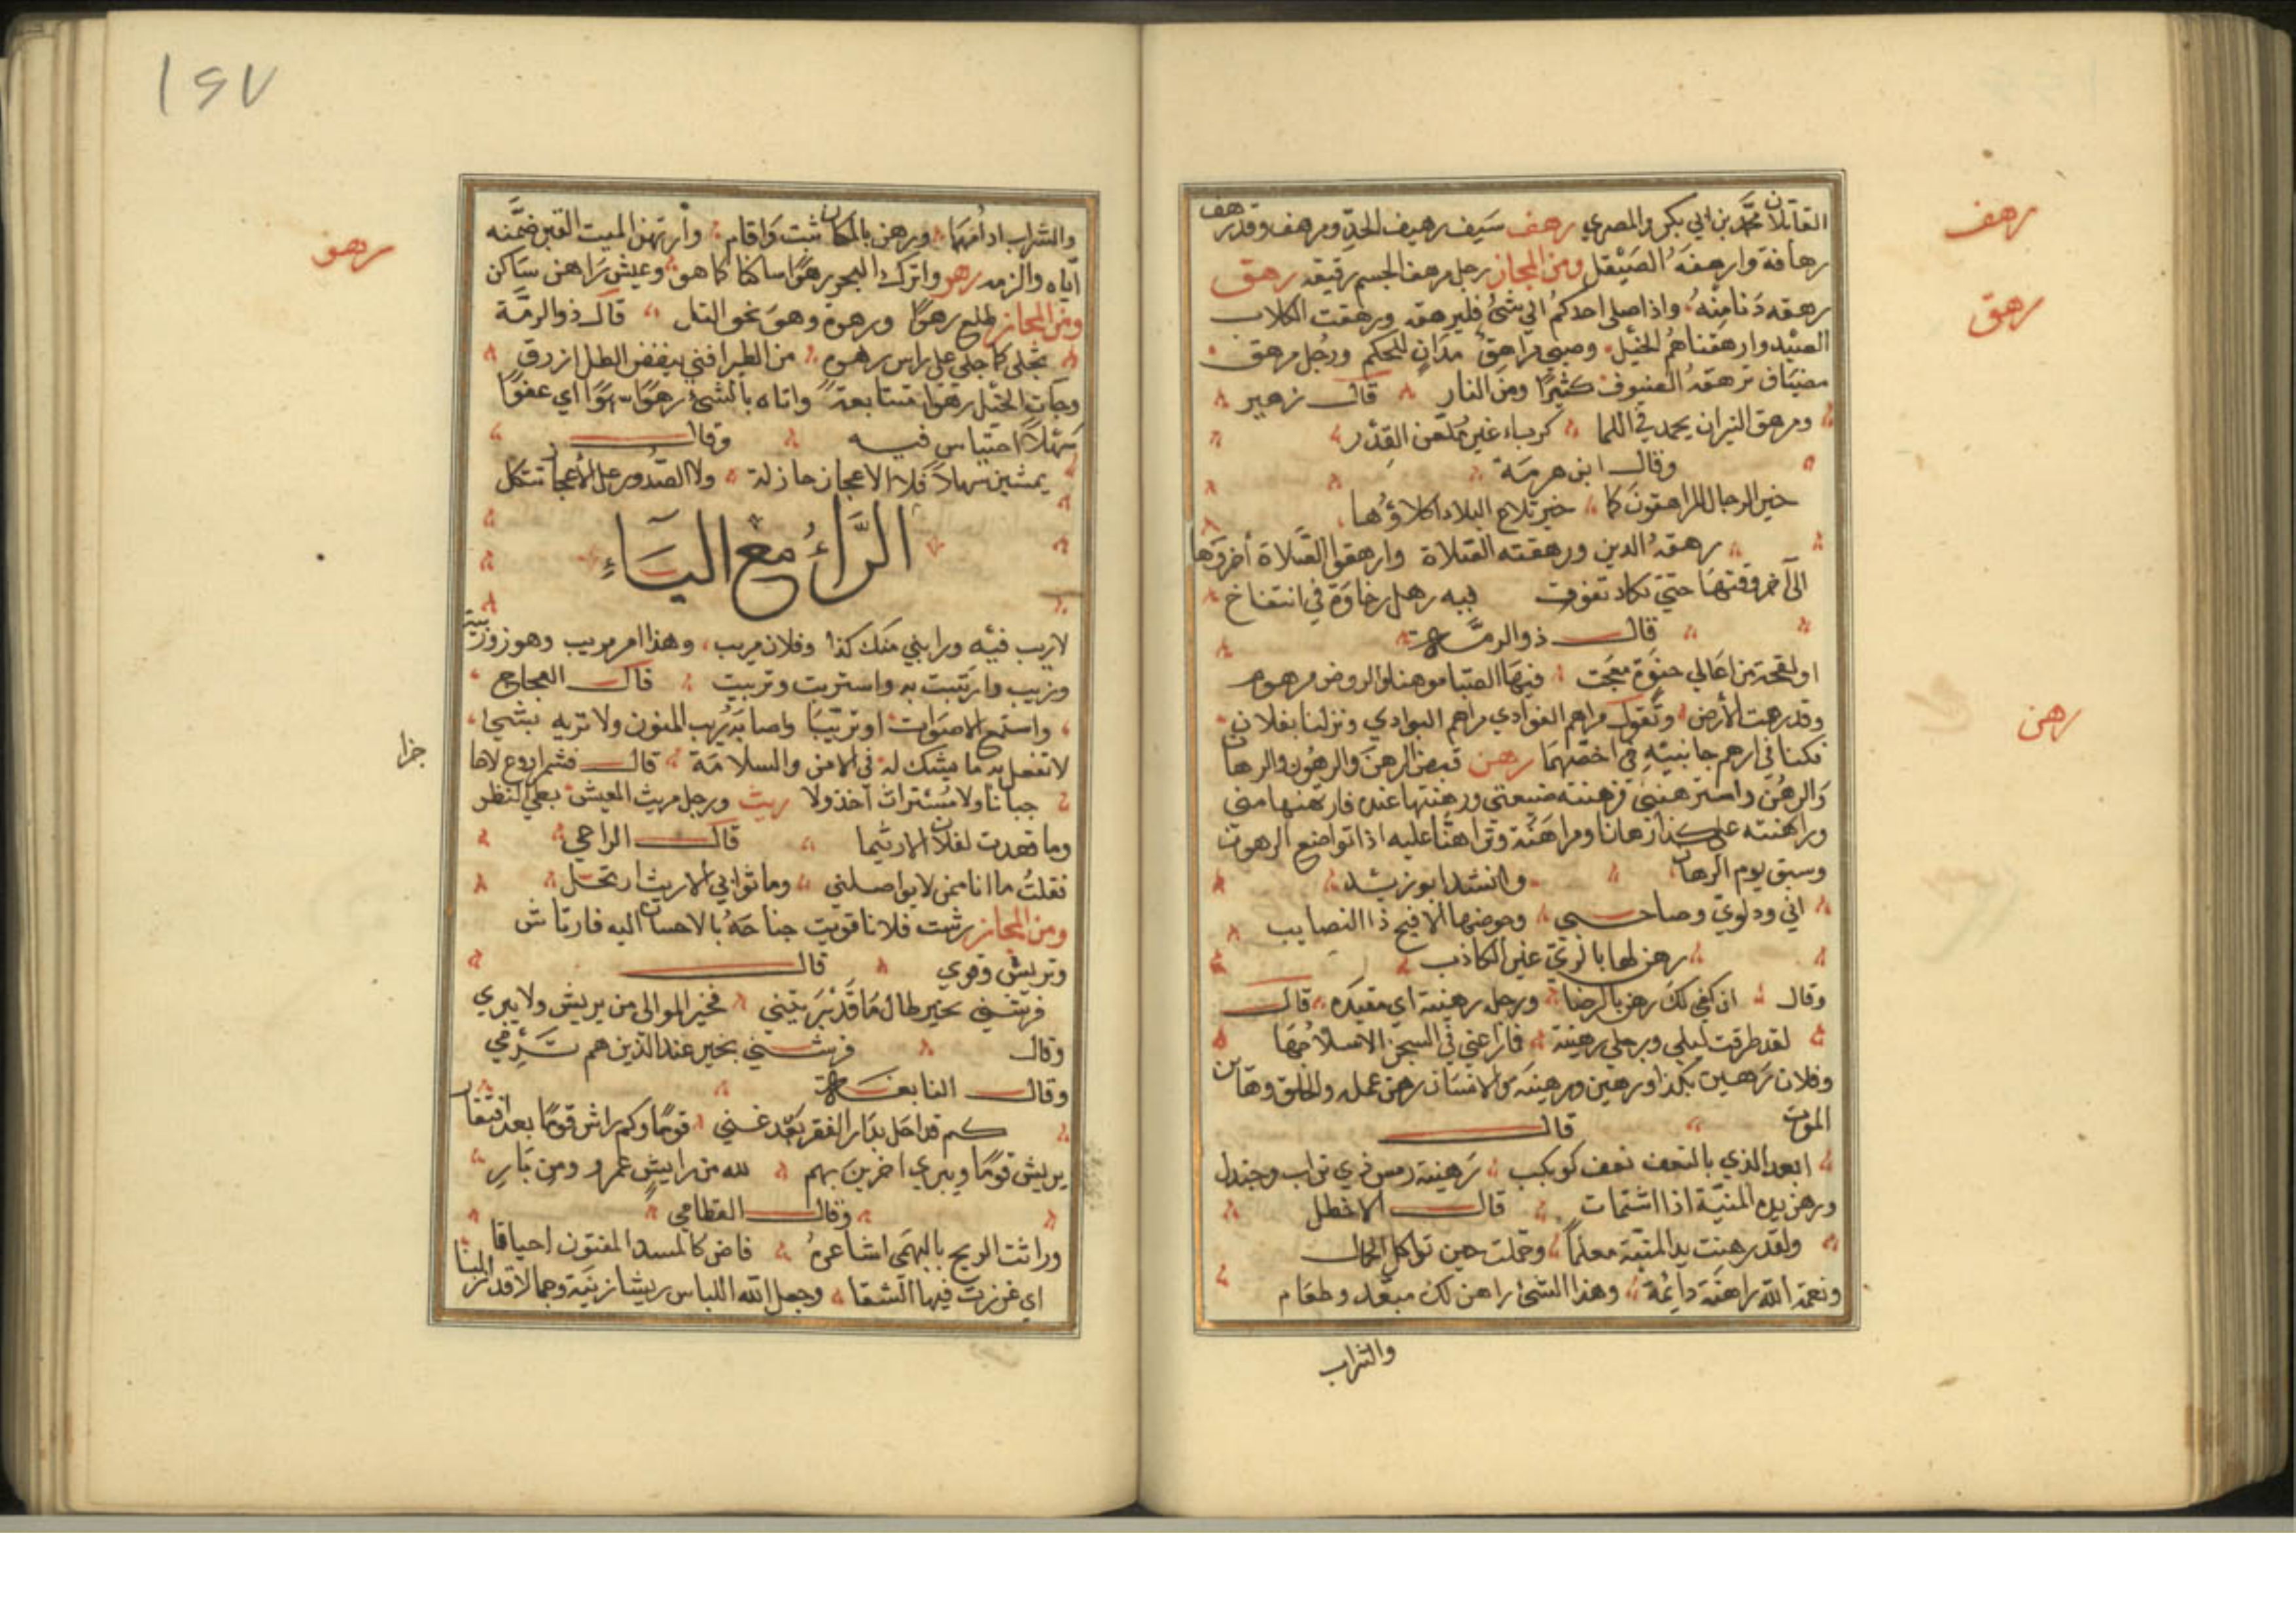 رهف
رهق
رهن
القاتلان محمد بن ابي بكر والمصري رهف سَيف رهيف الحدّ ومرهف وقد رهف
رهافة وارهفَهُ الصَيْقل ومن المجاز رجل مرهف الجسم رقيقه رهق
رهقه دَنا مِنْهُ واذا صلى احدكم الي شئ فليرهقه ورهقت الكلاب
الصَيْد وارهقناهُمُ الخيْل وصبي مراهق مدَانٍ للحكم ورجُل مرهق
مضيَاف ترهقهُ الضيوف كثيرًا ومنَ النار قال زهير
ومرهق النيران يحمد في اللما كرباء غير مُلعّن القِدْر
وقال ابن هرمَة
خير الرجال المراهقونَ كما خير تلاع البلاد اكلاؤُها
رهقهُ الدين ورهقته الصَلاة وارهقوا الصَلاة أخروَها
الى آخر وقتهَا حتي تكاد تفوت فيه رهل رخاوَة في انتفاخ
قال ذو الرمَّة
او نفحَة من اعَالي حنوَة معَجت فيهَا الصَبا موهنا والروض مرهوم
وقد رهمت الأرض وتَقول مراهم الغوادي مراهم البوادي ونزلنا بفلان
فكنا في ارهم جانبيْهِ في اخصّهمَا رهن قبض الرهن وَالرهُون والرهان
وَالرهُن واسترهنني فرهنته ضيعتي ورهنتها عنده فارتهنها مني
وراهنته على كذا رهانا ومراهَنَة وتراهنَّا عليه اذا تواضع الرهون
وسبق يوم الرهان وانشد ابو زيد
اني ودلويّ وصاحبي وحوضها الافيح ذا النصايب
رهن لها بالريّ غير الكاذب
وقال ان كفي لكَ رهن بالرضا ورجل رهينة اي مقيدَه قال
لقد طرقت ليلي ورجلي رهينة فما راعني في السجن الا سلامُهَا
وفلان رَهين بكذا ورهين ورهينَه والانسَان رهن عمله والخلق رهاين
الموت قال
ابعد الذي بالنعف نعف كويكب رَهينة رمس ذي تراب وجندل
ورهن يده المنيّة اذا استمات قال الاخطل
ولقد رهنت يد المنيّة معلماً وحملت حين تواكل الحمال
ونعمة الله راهنَة دايمَة وهذا الشئ راهن لك مبعَد وطعَام
والشراب
١٤٧
رهو
جزا
والشراب ادامَهمَا ورهن بالمكان ثبت وَاقام وارتهن الميت القبر ضمّنه
ايّاه والزمه رهو واترك البحر رهوًا ساكنا كما هو وعيش رَاهن سَاكن
ومن المجاز طلع رهوًا ورهوة وهوَ نحو التل قال ذو الرمّة
تجلى كما جلى على راس رهوة من الطير اقني ينفض الطل ازرق
وجآت الخيْل رهوا متتابعة واتاه بالشئ رهوًا سَهوًا اي عفوًا
سَهْلاً لا احتباس فيه وقال
يمشين رهوا فلا الاعجاز خاذلة ولا الصُدور على الأعجاز تتكل
الرَّاءُ مَعَ اليَاءِ
لا ريب فيْه ورابني منك كذا وفلان مريب وهذا امر مريب وهو ذو ريبَة
وريب وارتَبت به واستربت وتريبت قال العجاج
واستمع الاصوَات او تريّبَا واصابَه رَيب المنون ولا تربه بشي
لا تفعل به ما يشك له في الامن والسلامَة قال
جبانا ولا مُستراث اخذ ولا ريث ورجل مريث العينين بطئ النظر
وما قعدت لفلان الا ريثما قال الراعي
فقلتُ ما انا ممن لا يواصلني وما ثواي الا ريث ارتحل
ومن المجاز رشت فلانا قويت جناحَهُ بالاحسان اليه فارتاش
وتريش وقوي قال
فرشني بخير طال مَا قَدْ بَرَيتني فخير الموالى من يريش ولا يبري
وقال فرشني بخير عند الذين هم
وقال النابغَة
كم قد احل بدَار الفقر بَعْد غني قومًا وكم راش قومًا بعد اقتقار
يريش قومًا ويبري اخرينَ بهم لله من رايش عمرو ومِن بَارِ
وقال القطامي
وراثت الريح بالبهمَى اشاعرهُ فاض كالمسد المفتون احناقا
اي غرزت فيها السّفا وجعل الله اللباس ريشا زينَة وجمالا قد انزلنا